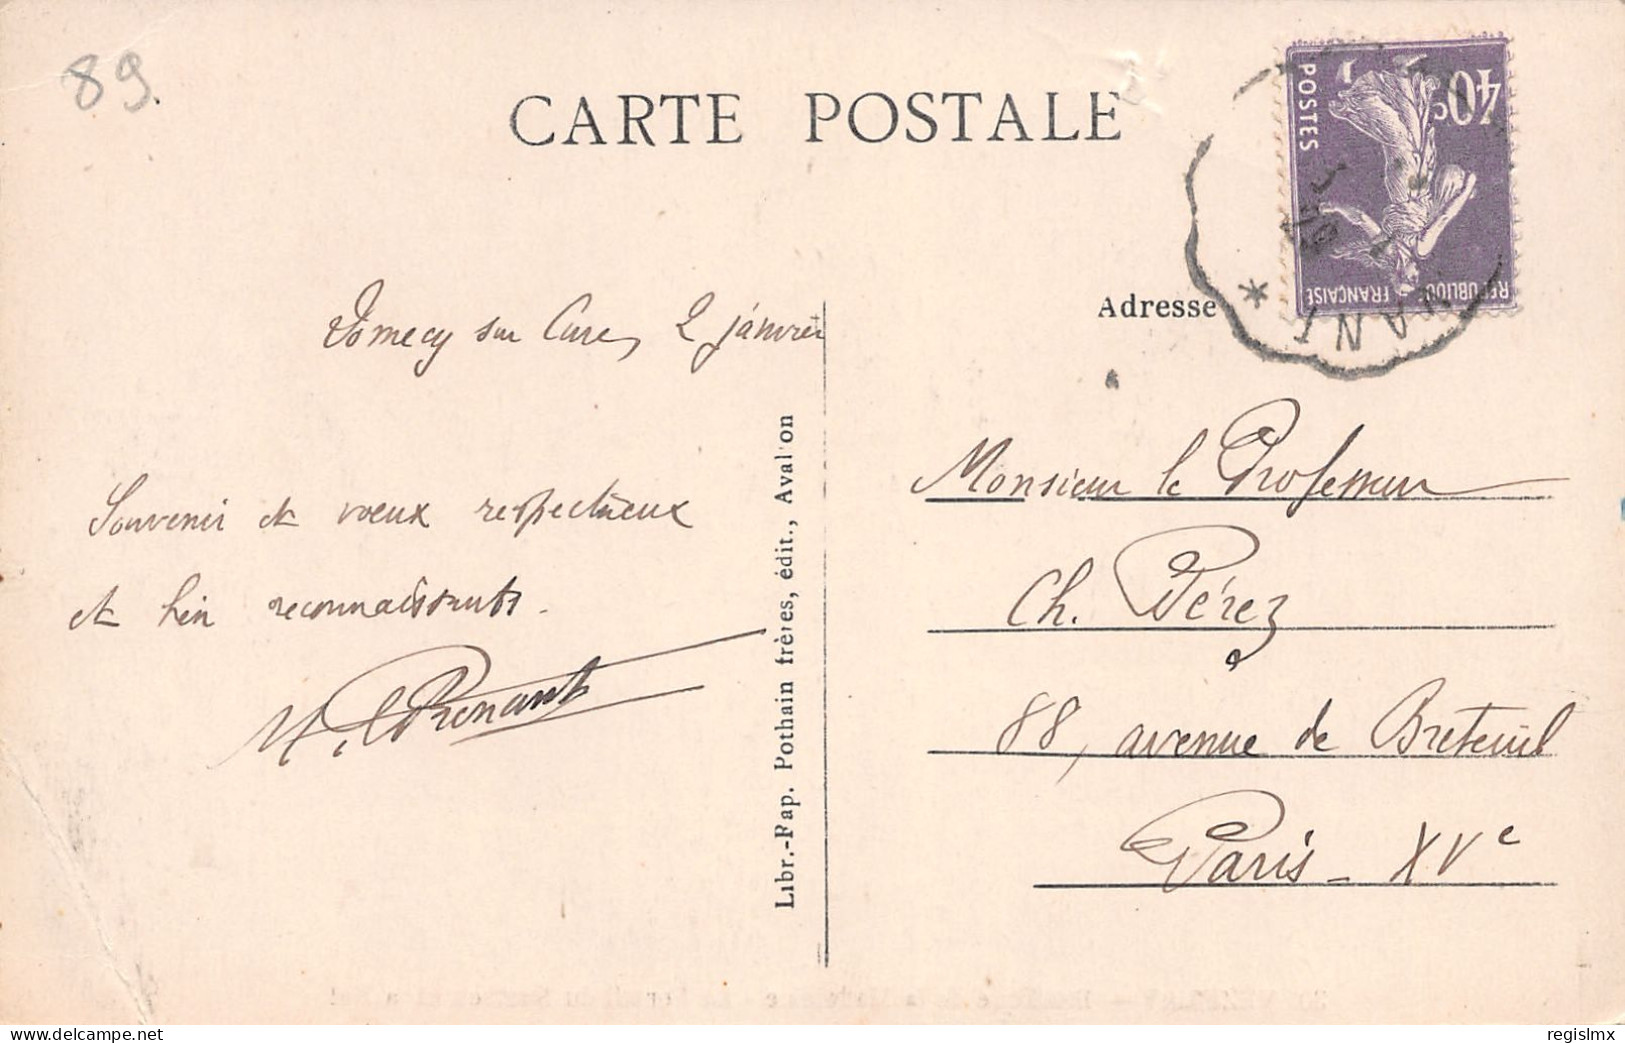 89.
CARTE POSTALE
40c
POSTES
REPUBLIQUE FRANÇAISE
Adresse
Domecy sur Cure, 2 janvier
Souvenir et voeux respectueux
et bien reconnaissants.
Libr.-Pap. Pothain frères, édit., Avallon
Monsieur le Professeur
Ch. Pérez
88, avenue de Breteuil
Paris - XVe
delcampe.net
regislmx